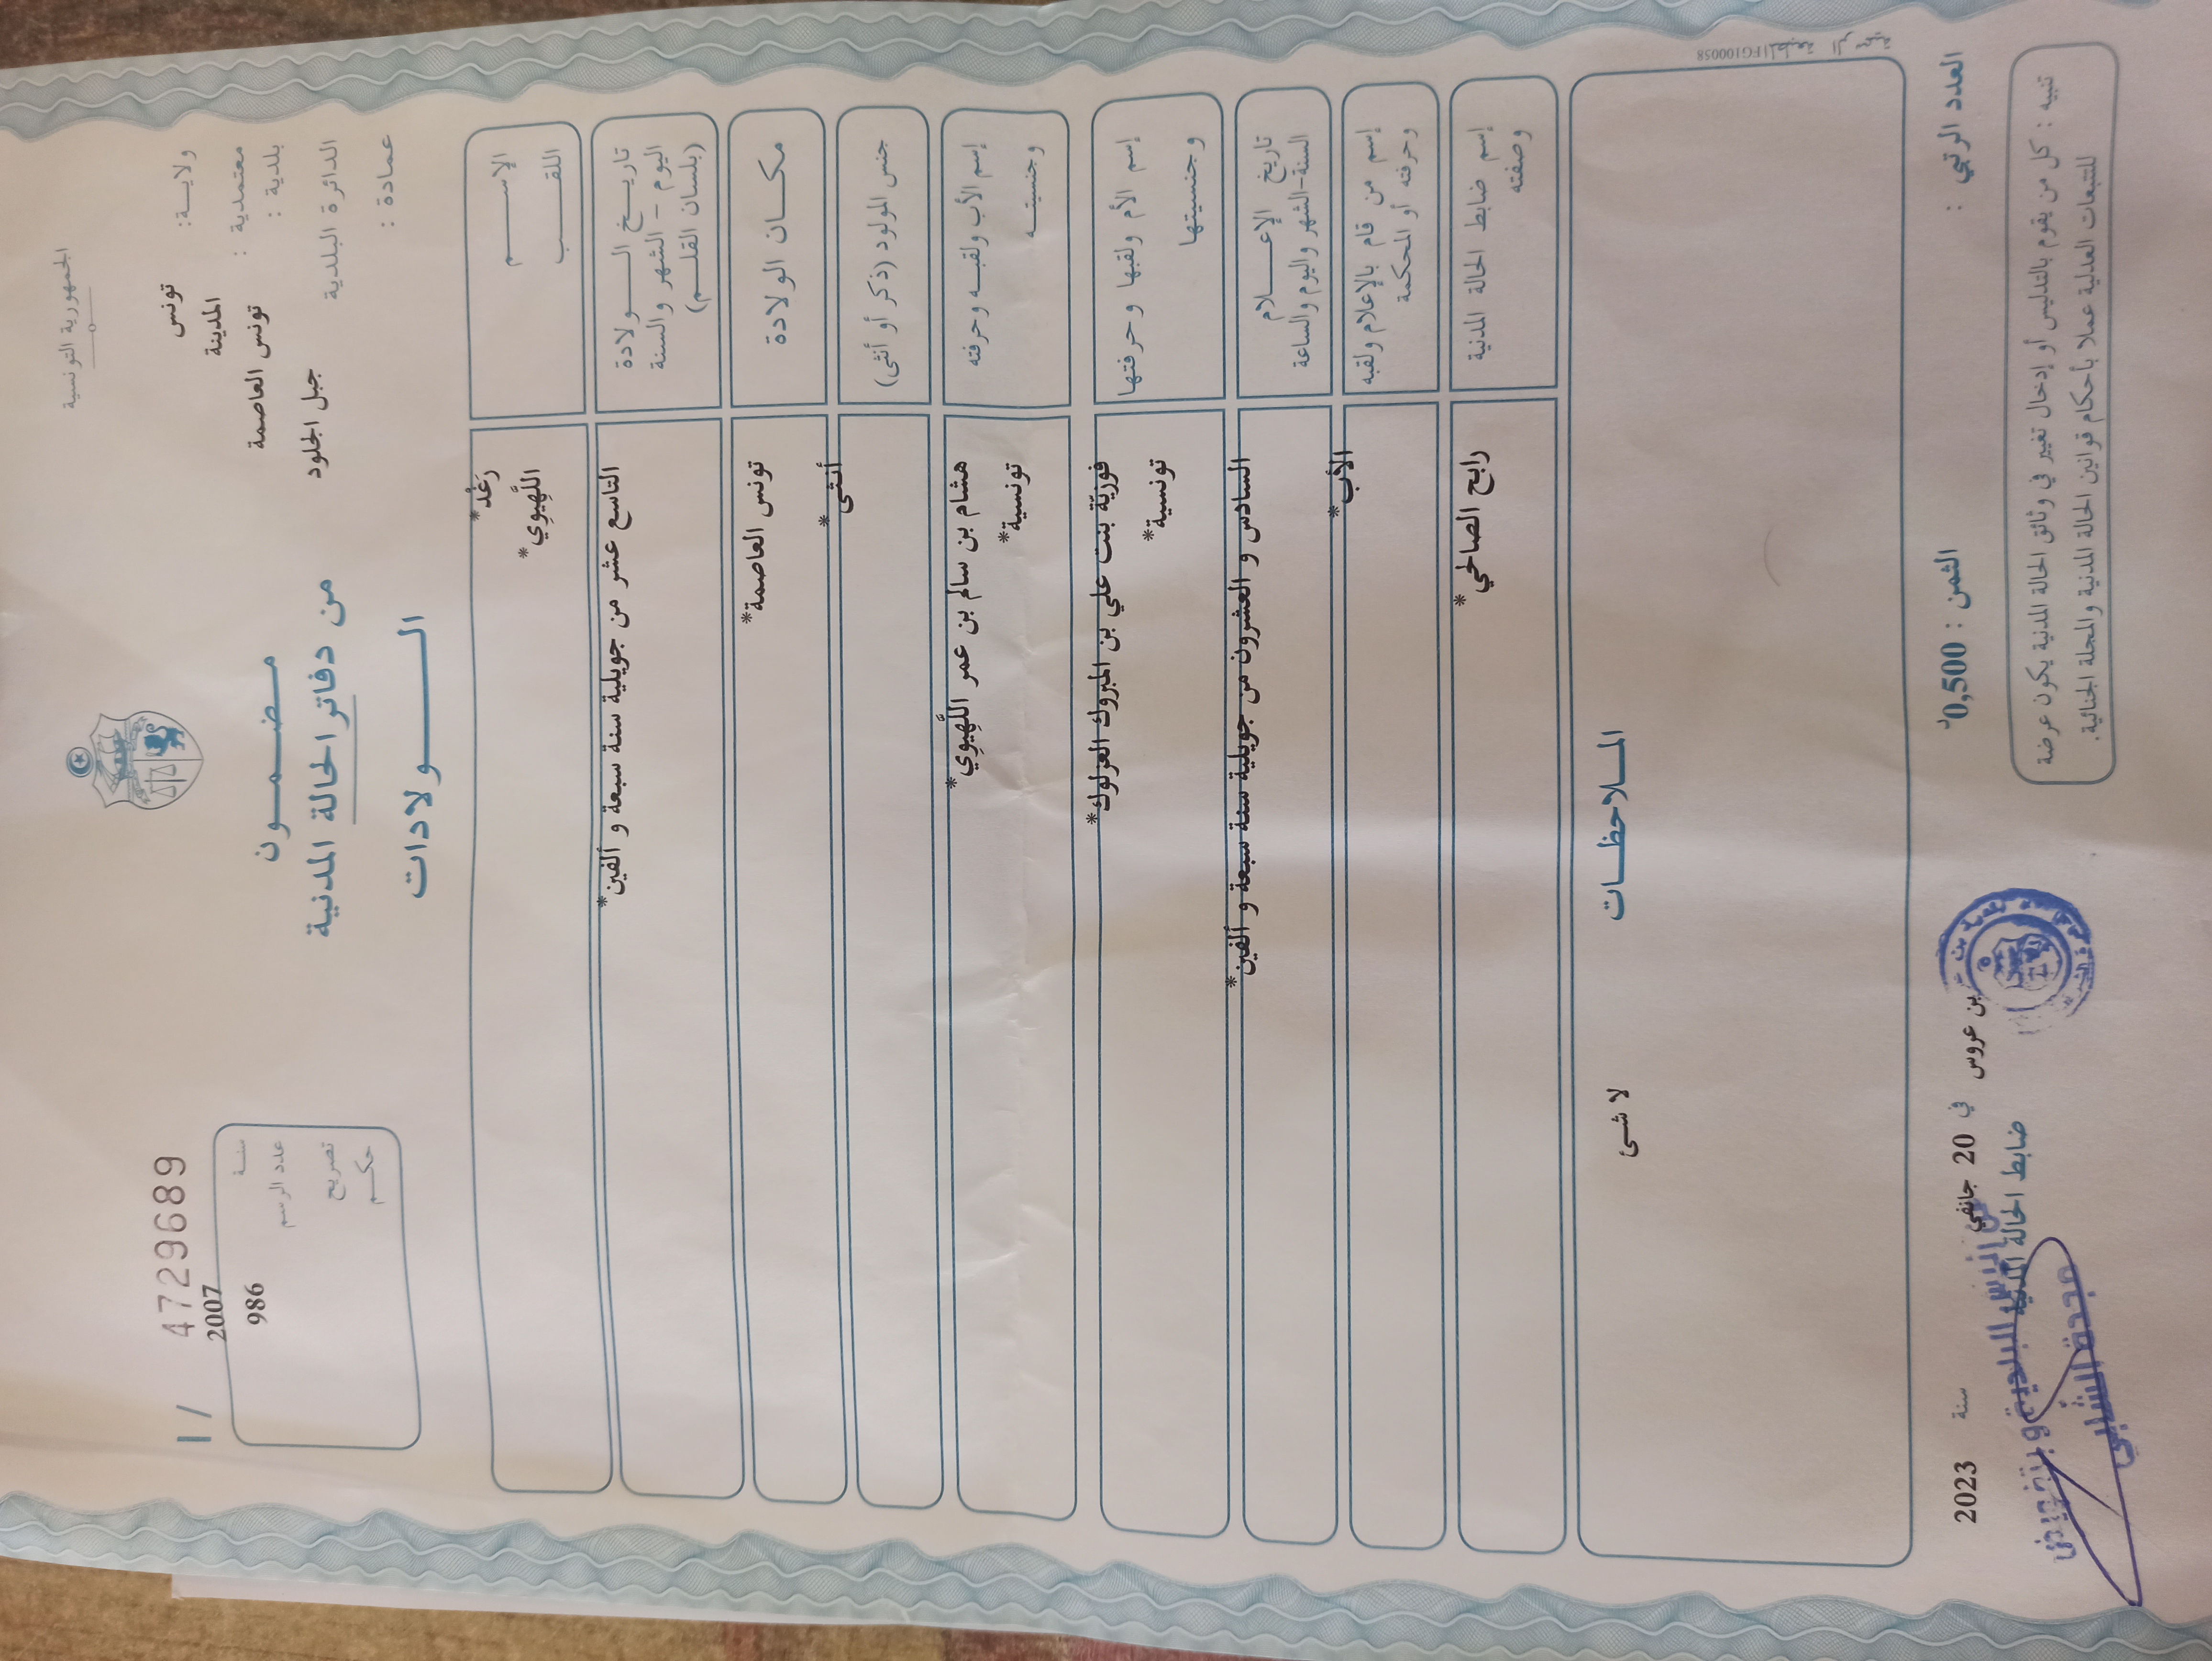 الجمهورية التونسية
ولايـــة: تونس
معتمدية : المدينة
بلدية : تونس العاصمة
الدائرة البلدية جبل الجلود
عمادة :
مـــضـــمـــون
من دفاتر الحالة المدنية
الـــــولادات
I / 4729689
2007
سنـــة
عدد الرسم 986
تصريح
حكـــم
الإســـــم رَغْد*
اللقـــــب اللَّهِيوِي*
تاريـــخ الـــــولادة التاسع عشر من جويلية سنة سبعة و ألفين*
اليوم – الشهر والسنة
(بلسان القلـــم)
مكـــان الولادة تونس العاصمة*
جنس المولود (ذكر أو أنثى) أنثى*
إسم الأب ولقبـــه وحرفته هشام بن سالم بن عمر اللَّهِيوِي*
وجنسيتـــه تونسية*
إسم الأم ولقبها وحرفتها فوزيّة بنت علي بن المبروك العزلوك*
وجنسيتها تونسية*
تاريخ الإعـــــلام السادس و العشرون من جويلية سنة سبعة و ألفين*
السنة-الشهر واليوم والساعة
إسم من قام بالإعلام ولقبه الأب*
وحرفته أو المحكمة
إسم ضابط الحالة المدنية رابح الصالحي*
وصفته
المـــلاحظـــات
لا شئ
FG100058
العدد الرتبي :
الثمن : 0,500د
بن عروس في 20 جانفي سنة 2023
ضابط الحالة المدنية
مجدة الشّابي
تنبيه : كل من يقوم بالتدليس أو إدخال تغيير في وثائق الحالة المدنية يكون عرضة
للتتبعات العدلية عملا بأحكام قوانين الحالة المدنية والمجلة الجنائية.